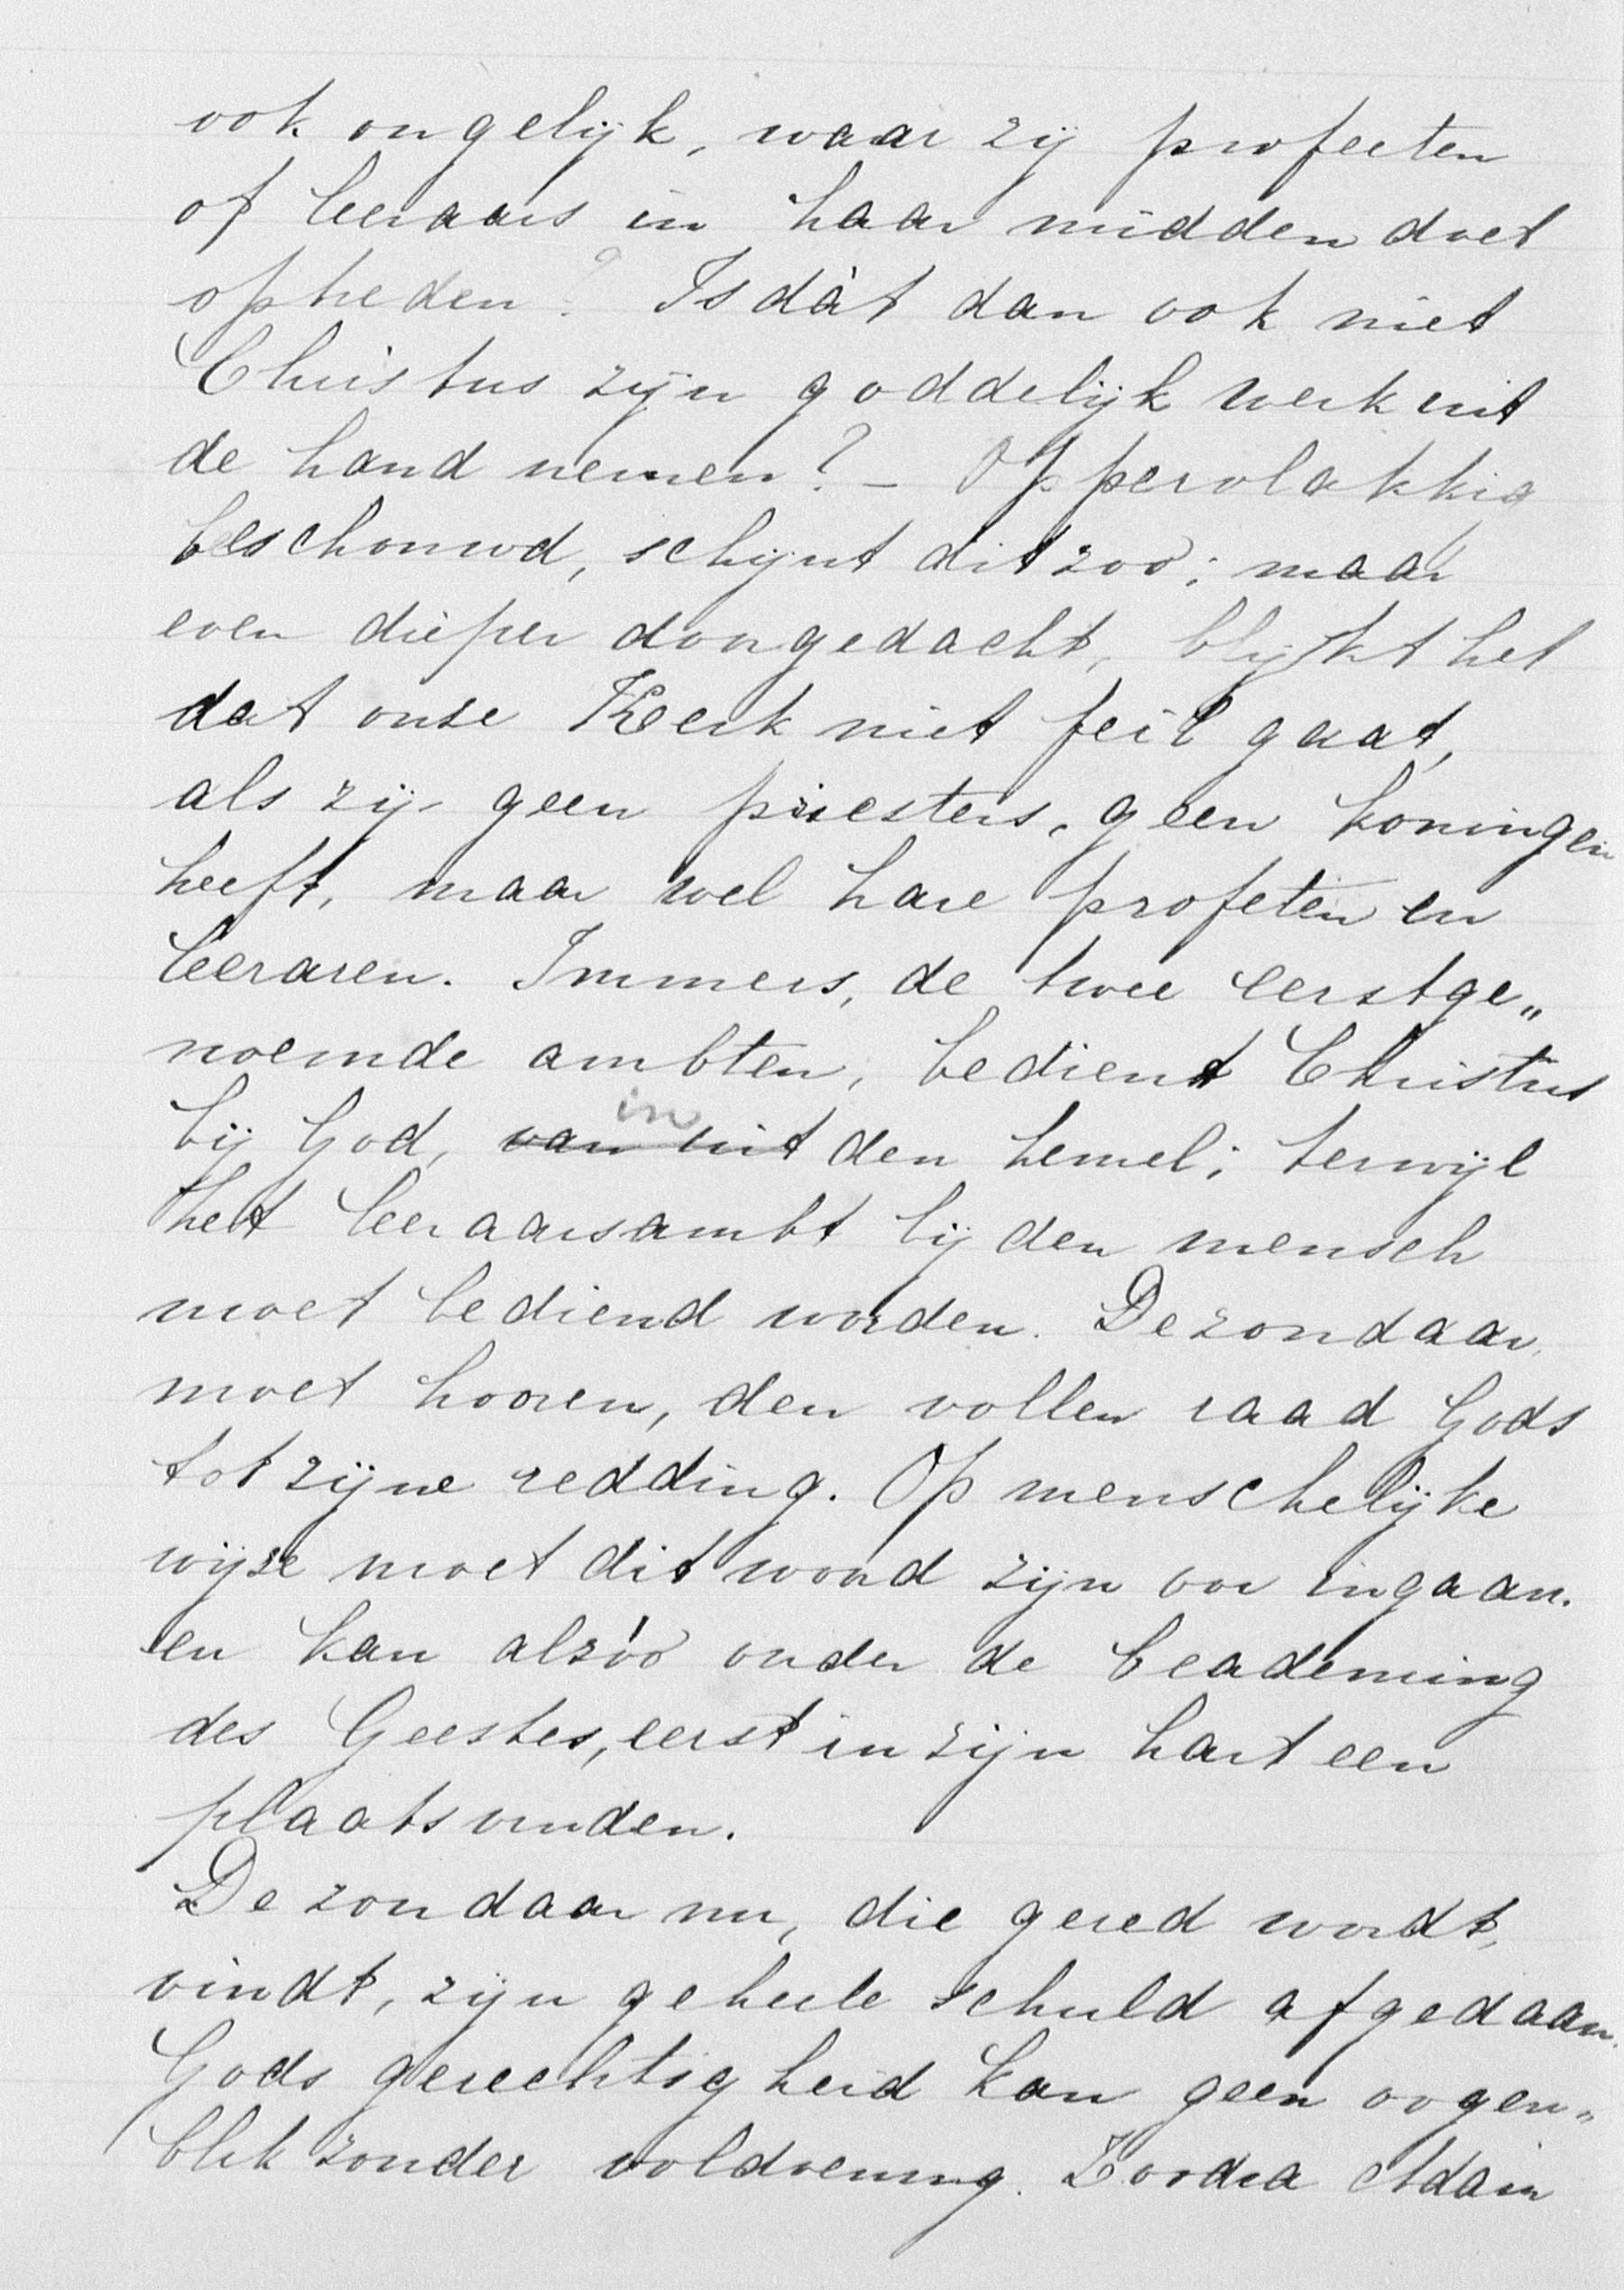 ook ongelijk, waar zij profeeten
of leeraars in haar midden doet
optreden? Is dàt dan ook niet
Christus zijn goddelijk werk uit
de hand nemen? – Oppervlakkig
beschouwd, schijnt dit zoo; maar
even dieper doorgedacht, blijkt het
dat onze Kerk niet feil gaat,
als zij geen priesters, geen koningen
heeft, maar wel hare profeten en
leeraren. Immers, de twee eerstge„
noemde ambten, bedient Christus
bij God, van uit in den hemel; terwijl
het leeraarsambt bij den mensch
moet bediend worden. De zondaar
moet hooren, den vollen raad Gods
tot zijne redding. Op menschelijke
wijze moet dit woord zijn oor ingaan.
en kan alzóó onder de beademing
des Geestes, eerst in zijn hart een
plaats vinden.
De zondaar nu, die gered wordt,
vindt, zijn geheele schuld afgedaan.
Gods gerechtigheid kan geen oogen„
blik zonder voldoening. Zoodra Adam